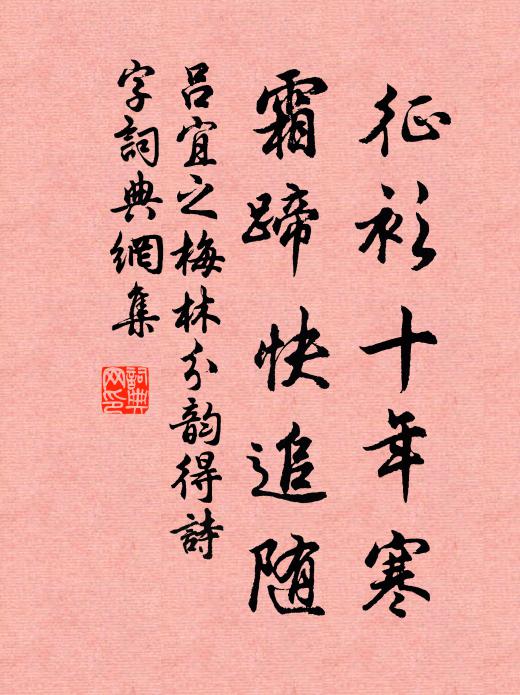 征衫十年寒
霜蹄快追随
吕宜之梅林分韵得詩
字詞典網集
詞典網印